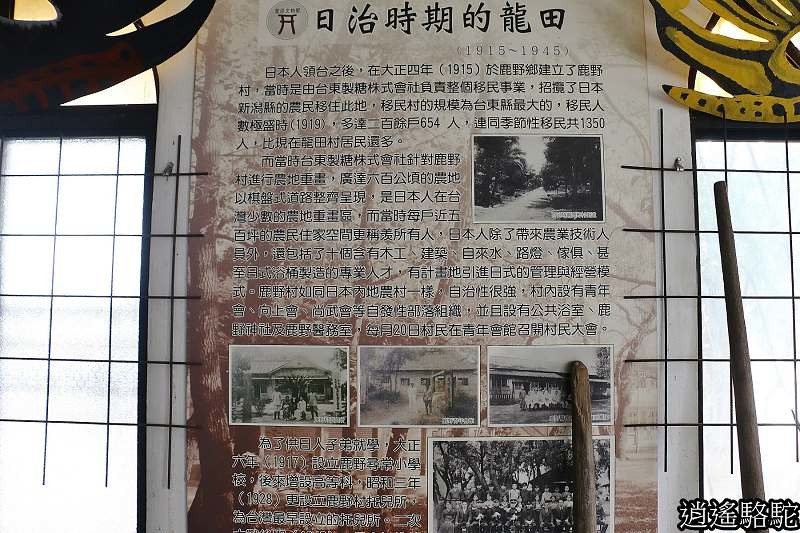 日治時期的龍田
(1915~1945)
日本人領台之後，在大正四年（1915）於鹿野鄉建立了鹿野
村，當時是由台東製糖株式會社負責整個移民事業，招攬了日本
新潟縣的農民移住此地，移民村的規模為台東縣最大的，移民人
數極盛時(1919)，多達二百餘戶654 人，連同季節性移民共1350
人，比現在龍田村居民還多。
而當時台東製糖株式會社針對鹿野
村進行農地重畫，廣達六百公頃的農地
以棋盤式道路整齊呈現，是日本人在台
灣少數的農地重畫區，而當時每戶近五
百坪的農民住家空間更稱羨所有人，日本人除了帶來農業技術人
員外，還包括了十個含有木工、建築、自來水、路燈、傢俱、甚
至日式浴桶製造的專業人才，有計畫地引進日式的管理與經營模
式。鹿野村如同日本內地農村一樣，自治性很強，村內設有青年
會、向上會、尚武會等自發性部落組織，並且設有公共浴室、鹿
野神社及鹿野醫務室，每月20日村民在青年會館召開村民大會。
為了供日人子弟就學，大正
六年（1917）設立鹿野尋常小學
校，後來增設高等科，昭和三年
（1928）更設立鹿野村托兒所，
為台灣最早設立的托兒所。二次
逍遙駱駝